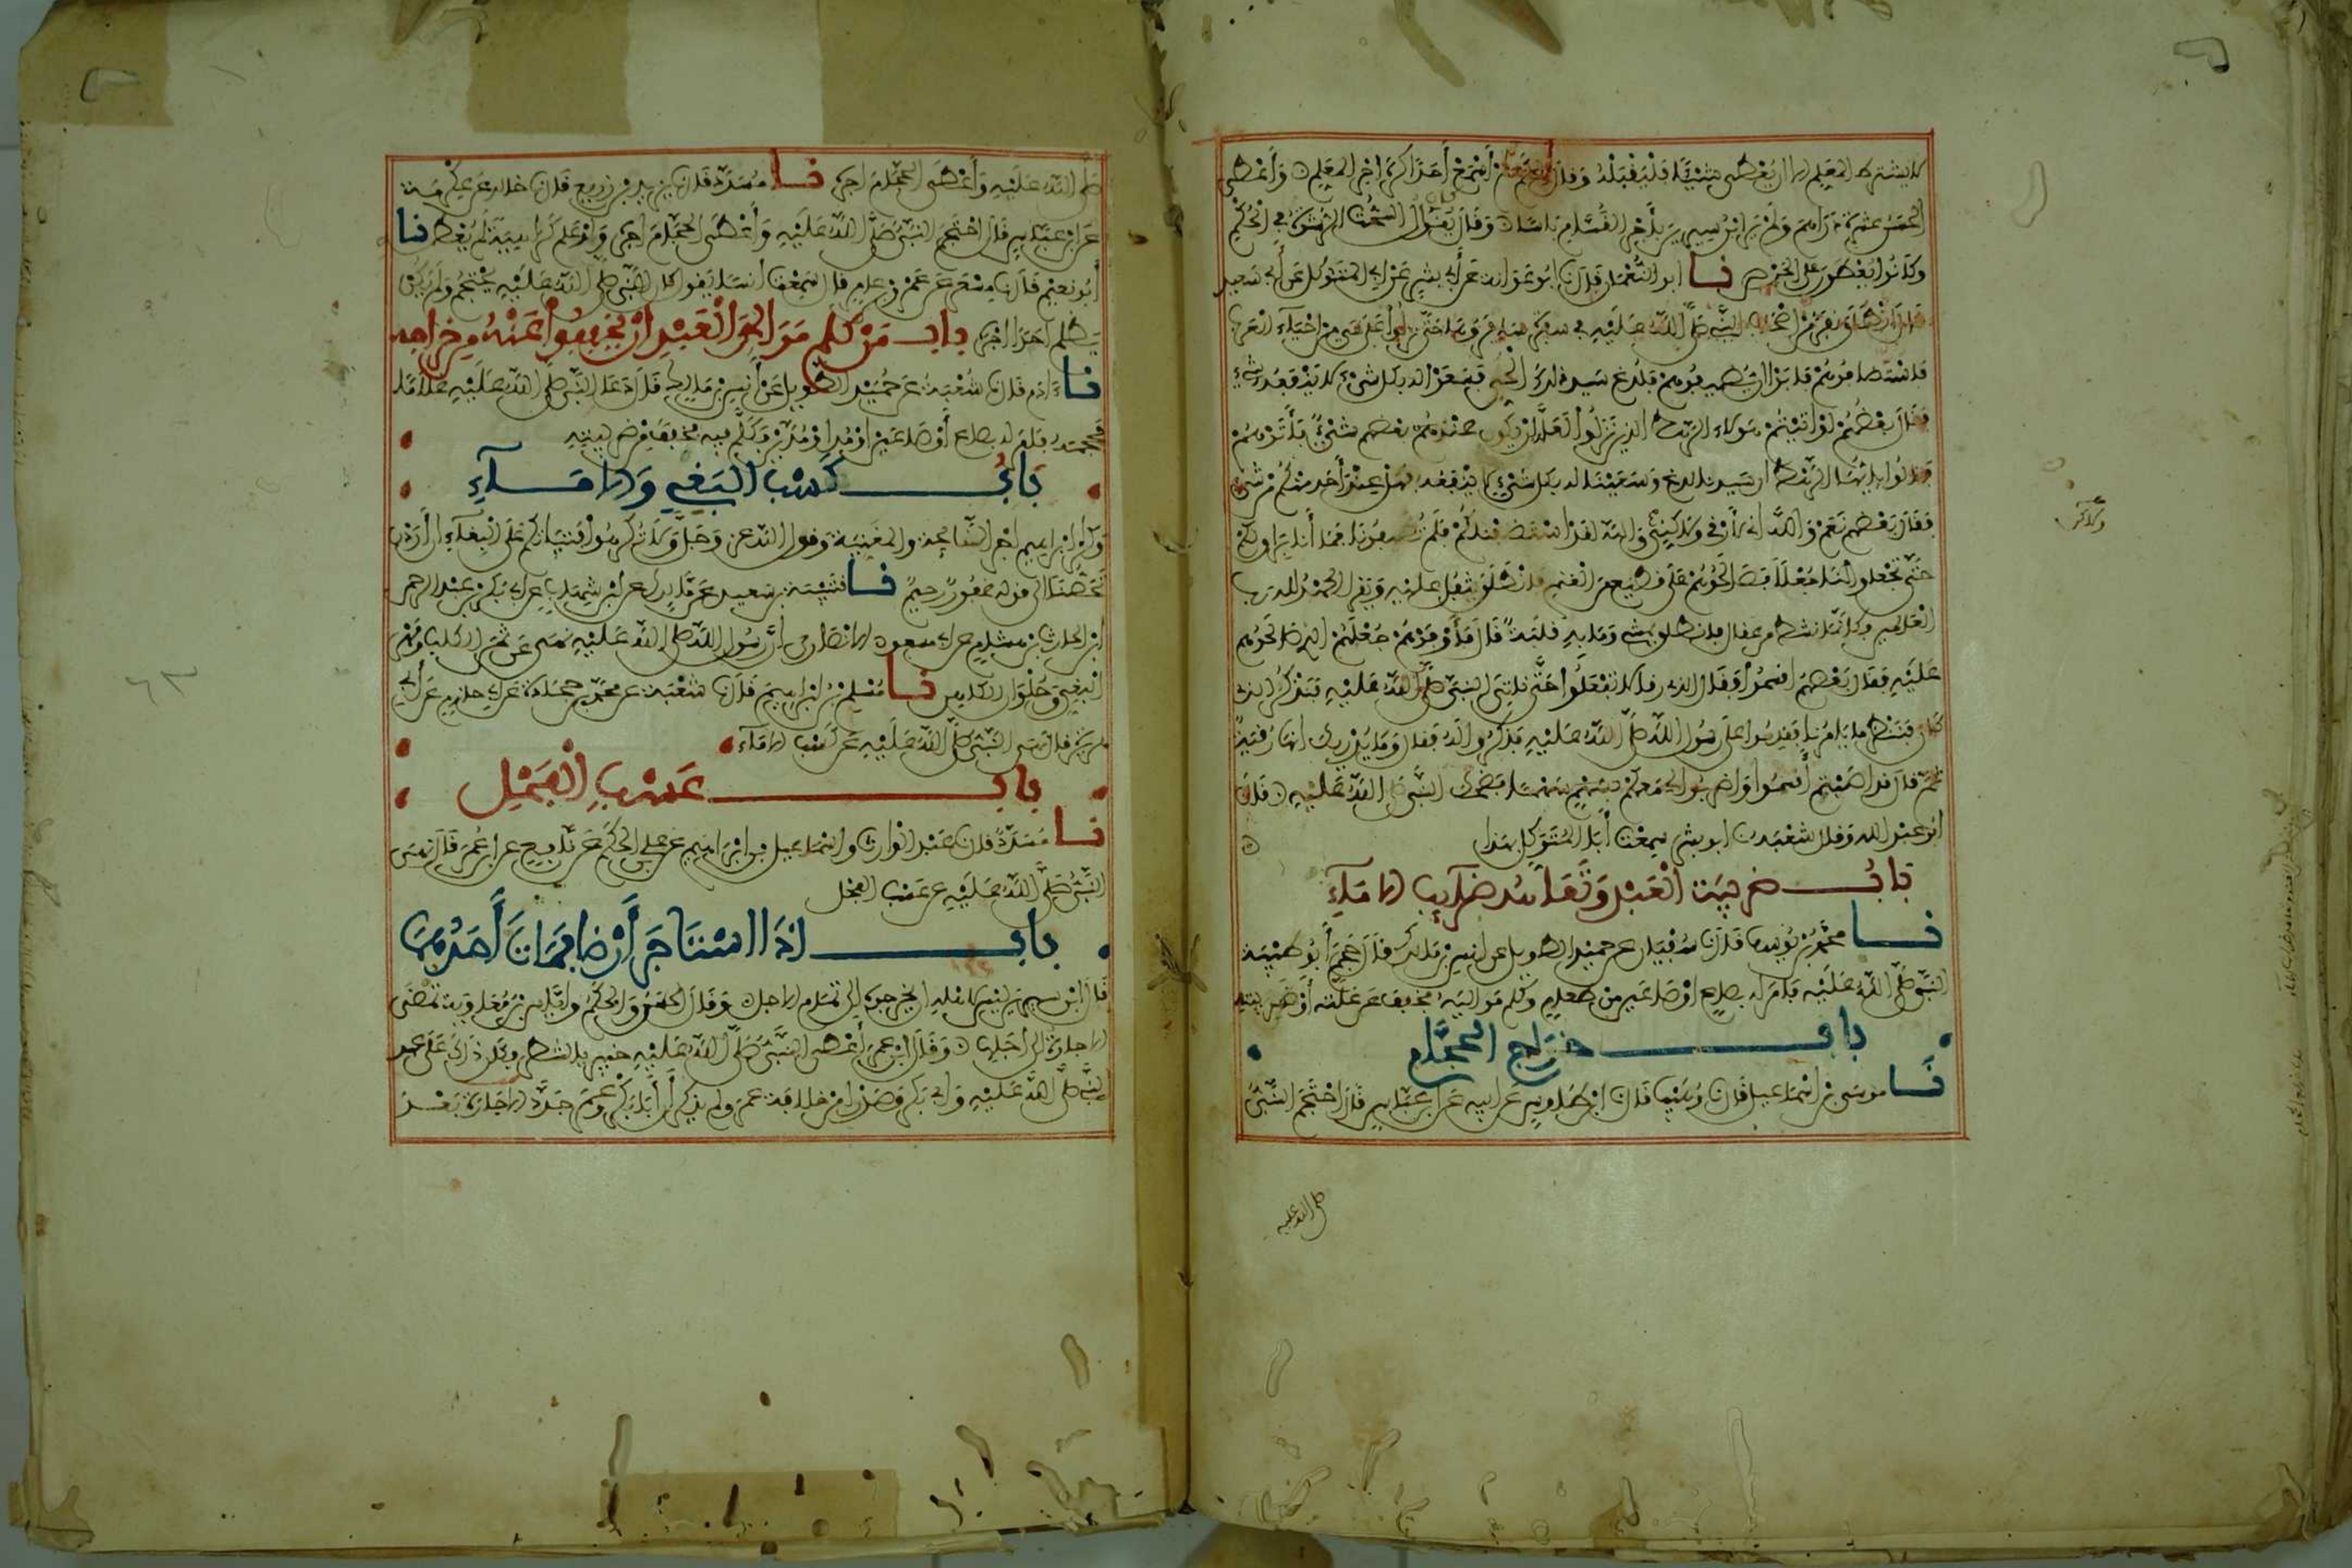 لا يشترط المعلم الا ان يعطى شيئا فليقبله وقال الحكم لم أسمع أحدا كره اجر المعلم وأعطى
الحسن عشرة دراهم ولم ير ابن سيرين بأجر القسام باسا وقال يقال السحت الرشوة في الحكم
وكانوا يعطون على الخرص نا ابو النعمان قال نا ابو عوانة عن أبي بشر عن ابي المتوكل عن أبي سعيد
قال انطلق نفر من اصحاب النبي صلى الله عليه في سفرة سافروها حتى نزلوا على حي من احياء العرب
فاستضافوهم فابوا ان يضيفوهم فلدغ سيد ذلك الحي فسعوا له بكل شيء لا ينفعه شيء
فقال بعضهم لو اتيتم هولاء الرهط الذين نزلوا لعله ان يكون عند بعضهم شيء فأتوهم
فقالوا يا يها الرهط ان سيدنا لدغ وسعينا له بكل شيء لا ينفعه فهل عند أحد منكم من شيء
فقال بعضهم نعم والله اني لأرقي ولكني والله لقد استضفناكم فلم تضيفونا فما أنا براق لكم
حتى تجعلوا لنا جعلا فصالحوهم على قطيع من الغنم فانطلق يتفل عليه ويقرا الحمد لله رب
العلمين فكانما نشط من عقال فانطلق يمشي وما به قلبة قال فأوفوهم جعلهم الذي صالحوهم
عليه فقال بعضهم اقسموا وقال الذي رقا لا تفعلوا حتى ناتي النبي صلى الله عليه فنذكر الذي
كان فننظر ما يامرنا فقدموا على رسول الله صلى الله عليه فذكروا له فقال وما يدريك انها رقية
ثم قال قد اصبتم أقسموا واضربوا لي معكم سهما فضحك النبي صلى الله عليه قال
ابو عبد الله وقال شعبة نا ابو بشر سمعت أبا المتوكل بهذا
باب ضريبة العبد وتعاهد ضرائب الاماء
نا محمد بن يوسف قال نا سفيان عن حميد الطويل عن انس بن مالك قال حجم أبو طيبة
النبي صلى الله عليه فامر له بصاع او صاعين من طعام وكلم مواليه فخفف عن غلته أو ضريبته
باب خراج الحجام
نا موسى بن اسماعيل قال نا وهيب قال نا ابن طاوس عن ابيه عن ابن عباس قال احتجم النبي
صلى الله عليه
ولاكن
صلى الله عليه وأعطى الحجام اجره نا مسدد قال نا يزيد بن زريع قال نا خالد عن عكرمة
عن ابن عباس قال احتجم النبي صلى الله عليه وأعطى الحجام اجره ولو علم كراهية لم يعطه نا
أبو نعيم قال نا مسعر عن عمرو بن عامر قال سمعت أنسا يقول كان النبي صلى الله عليه يحتجم ولم يكن
يظلم احدا اجره باب من كلم موالي العبد ان يخففوا عنه من خراجه
نا ءادم قال نا شعبة عن حميد الطويل عن أنس بن مالك قال دعا النبي صلى الله عليه غلاما
فحجمه فامر له بصاع أو صاعين او مد او مدين وكلم فيه فخفف من ضريبته
باب كسب البغي والاماء
وكره ابراهيم اجر النائحة والمغنية وقول الله عز وجل ولا تكرهوا فتياتكم على البغاء ان أردن
تحصنا الى قوله غفور رحيم نا قتيبة بن سعيد عن مالك عن ابن شهاب عن ابي بكر بن عبد الرحمن
ابن الحارث بن هشام عن ابي مسعود الانصاري أن رسول الله صلى الله عليه نهى عن ثمن الكلب ومهر
البغي وحلوان الكاهن نا مسلم بن ابراهيم قال نا شعبة عن محمد بن جحادة عن ابي حازم عن أبي
هريرة قال نهى النبي صلى الله عليه عن كسب الاماء
باب عسب الفحل
نا مسدد قال نا عبد الوارث واسماعيل بن ابراهيم عن علي بن الحكم عن نافع عن ابن عمر قال نهى
النبي صلى الله عليه عن عسب الفحل
باب اذا استاجر أرضا فمات أحدهما
قال ابن سيرين ليس لاهله ان يخرجوه الى تمام الاجل وقال الحسن والحكم واياس بن معاوية تمضى
الاجارة الى أجلها وقال ابن عمر أعطى النبي صلى الله عليه خيبر بالشطر فكان ذلك على عهد
النبي صلى الله عليه وابي بكر وصدرا من خلافة عمر ولم يذكر أن أبا بكر وعمر جددا الاجارة بعد